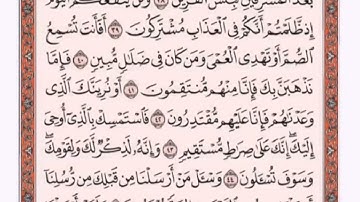 بُعْدَ ٱلْمَشْرِقَيْنِ فَبِئْسَ ٱلْقَرِينُ ٣٨ وَلَن يَنفَعَكُمُ ٱلْيَوْمَ
إِذ ظَّلَمْتُمْ أَنَّكُمْ فِى ٱلْعَذَابِ مُشْتَرِكُونَ ٣٩ أَفَأَنتَ تُسْمِعُ
ٱلصُّمَّ أَوْ تَهْدِى ٱلْعُمْىَ وَمَن كَانَ فِى ضَلَٰلٍ مُّبِينٍ ٤٠ فَإِمَّا
نَذْهَبَنَّ بِكَ فَإِنَّا مِنْهُم مُّنتَقِمُونَ ٤١ أَوْ نُرِيَنَّكَ ٱلَّذِى
وَعَدْنَٰهُمْ فَإِنَّا عَلَيْهِم مُّقْتَدِرُونَ ٤٢ فَٱسْتَمْسِكْ بِٱلَّذِىٓ أُوحِىَ
إِلَيْكَ إِنَّكَ عَلَىٰ صِرَٰطٍ مُّسْتَقِيمٍ ٤٣ وَإِنَّهُۥ لَذِكْرٌ لَّكَ وَلِقَوْمِكَ
وَسَوْفَ تُسْـَٔلُونَ ٤٤ وَسْـَٔلْ مَنْ أَرْسَلْنَا مِن قَبْلِكَ مِن رُّسُلِنَآ